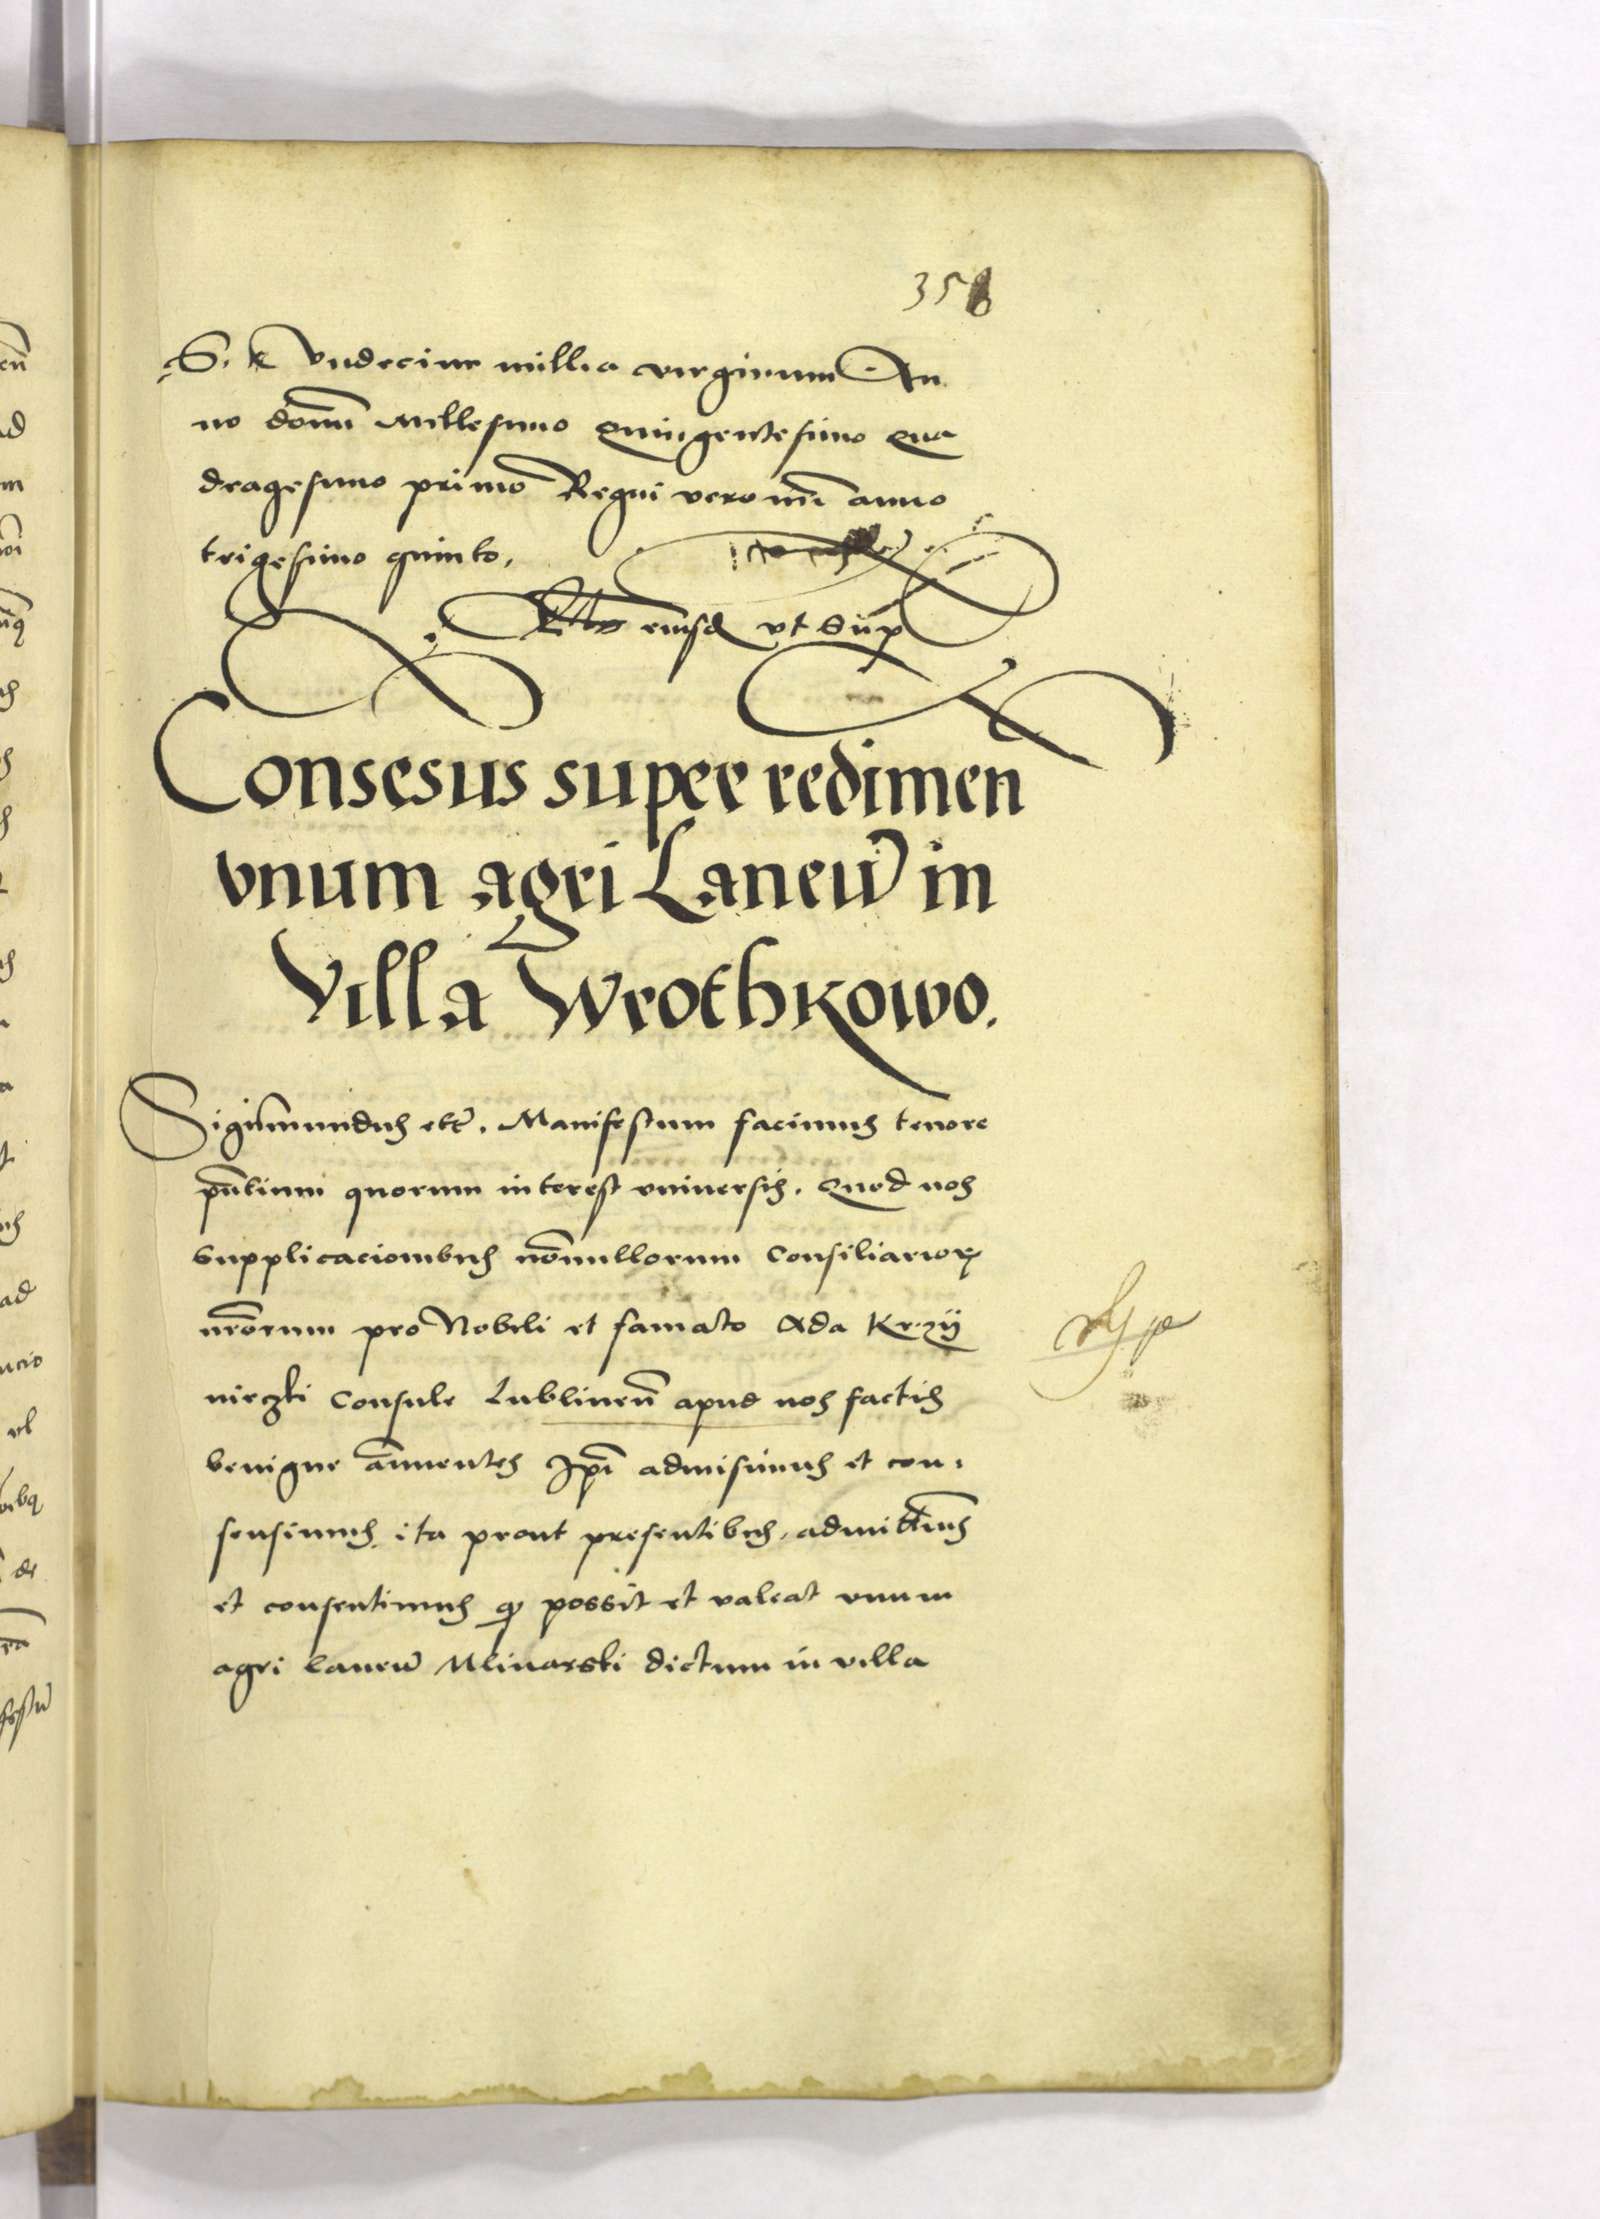 358
S. Vndecim millia virginum An
no domi Millesimo Quingentesimo Qua
dragesimo primo Regni vero nri anno
trigesimo quinto.
eiusd vt Sup
Consesus super redimen
vnum agri Laneu in
Villa Wrothkowo.
Sigismundus etc. Manifestum facimus tenore
pntium quorum interest vniuersis. Quod nos
Supplicacionibus nonnullorum Consiliarior
nrorum pro Nobili et famato Ada Krzy
nieczki Consule Lublinen apud nos factis
benigne annuentes Ipi admisimus et con
sensimus ita prout presentibus admittimus
et consentimus q possit et valeat vnum
agri laneu Mlinarski dictum in villa